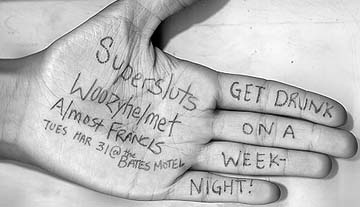 Supersluts
Woozyhelmet
Almost Francis
TUES MAR 31 @ the
BATES MOTEL
GET DRUNK
ON A
WEEK-
NIGHT!